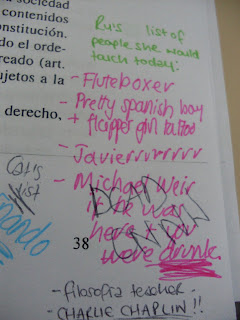 sociedad
contenidos
onstitución.
do el orde-
reado (art.
ujetos a la
derecho,
Ru's list of
people she would
touch today:
- Fluteboxer
- Pretty spanish boy
+ flipper girl tattoo
- Javierrrrrrrrr
- Michael Weir
if he was
here + you
were drunk.
DEAD
Cat's
list
38
- filosofia teacher.
- CHARLIE CHAPLIN!!